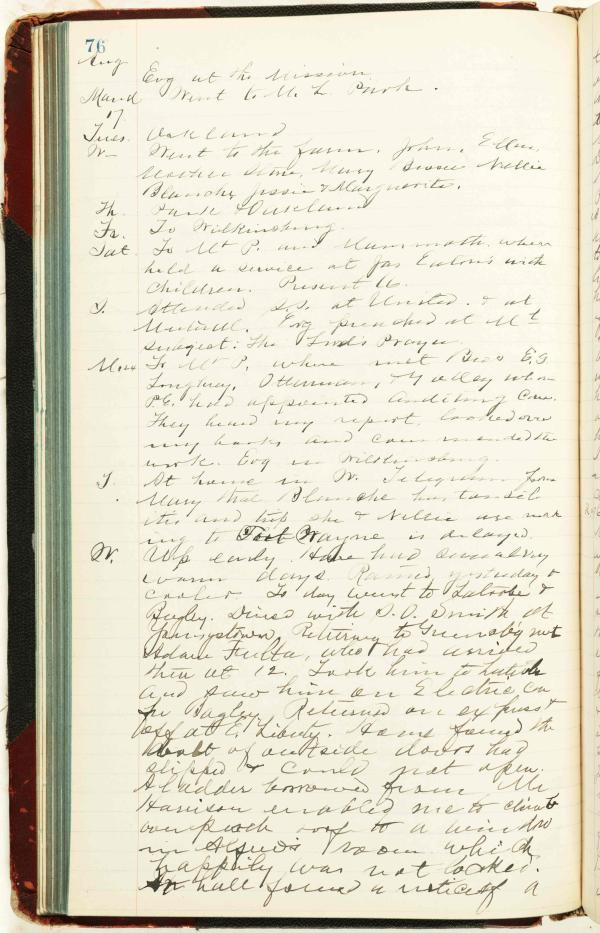 76
Aug Evg at the Mission.
Mond Went to M. L. Park.
17.
Tues. Oakland
W— Went to the farm. John, Ellen,
Mother, Mary Bessie Nellie
Blanche, Jessie & Marguerite.
Th. Park & Oakland
Fr. To Wilkinsburg.
Sat To Mt P. and Mammoth, where
held a service at Jas Eaton's with
children. Present 16.
S. Attended S.S. at United. & at
Evg preached at Mt
The Lord's Prayer
Mon To Mt P. where met Bros E. S
&
P.E. had appointed Auditing Com.
They heard my report, looked over
my books and commended the
work. Evg in Wilkinsburg.
T. At home in W. Telegram from
Mary that Blanche has tonsil
itis and trip she & Nellie are mak
ing to Fort Wayne is delayed.
W. Up early. Have had several very
warm days. Rained yesterday &
cooler. To day went to Latrobe &
Bagley. Dined with S. O. Smith at
Returning to Greensb'g met
Adam who had arrived
there at 12. Took him to
and saw him on Electric car
for Bagley. Returned on express &
off at E. Liberty. Home found the
bolt of outside doors had
slipped & could not open.
A ladder borrowed from Mr
Harrison enabled me to climb
over porch roof to a window
in room which
happily was not locked.
In hall found a notice of a